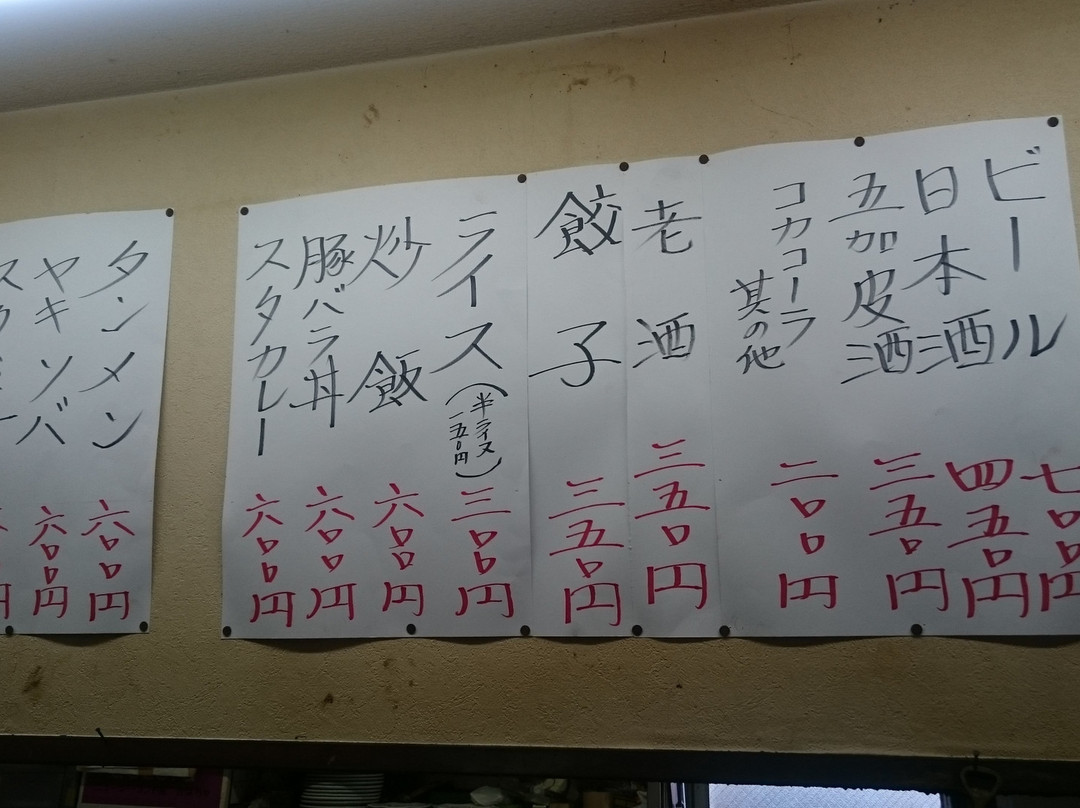 ビール 七〇〇円
日本酒 四五〇円
五加皮酒 三五〇円
コカコーラ
其の他 二〇〇円
老酒 三五〇円
餃子 三五〇円
ライス(半ライス一五〇円) 三〇〇円
炒飯 六〇〇円
豚バラ丼 六〇〇円
スタカレー 六〇〇円
タンメン 六〇〇円
ヤキソバ 六〇〇円